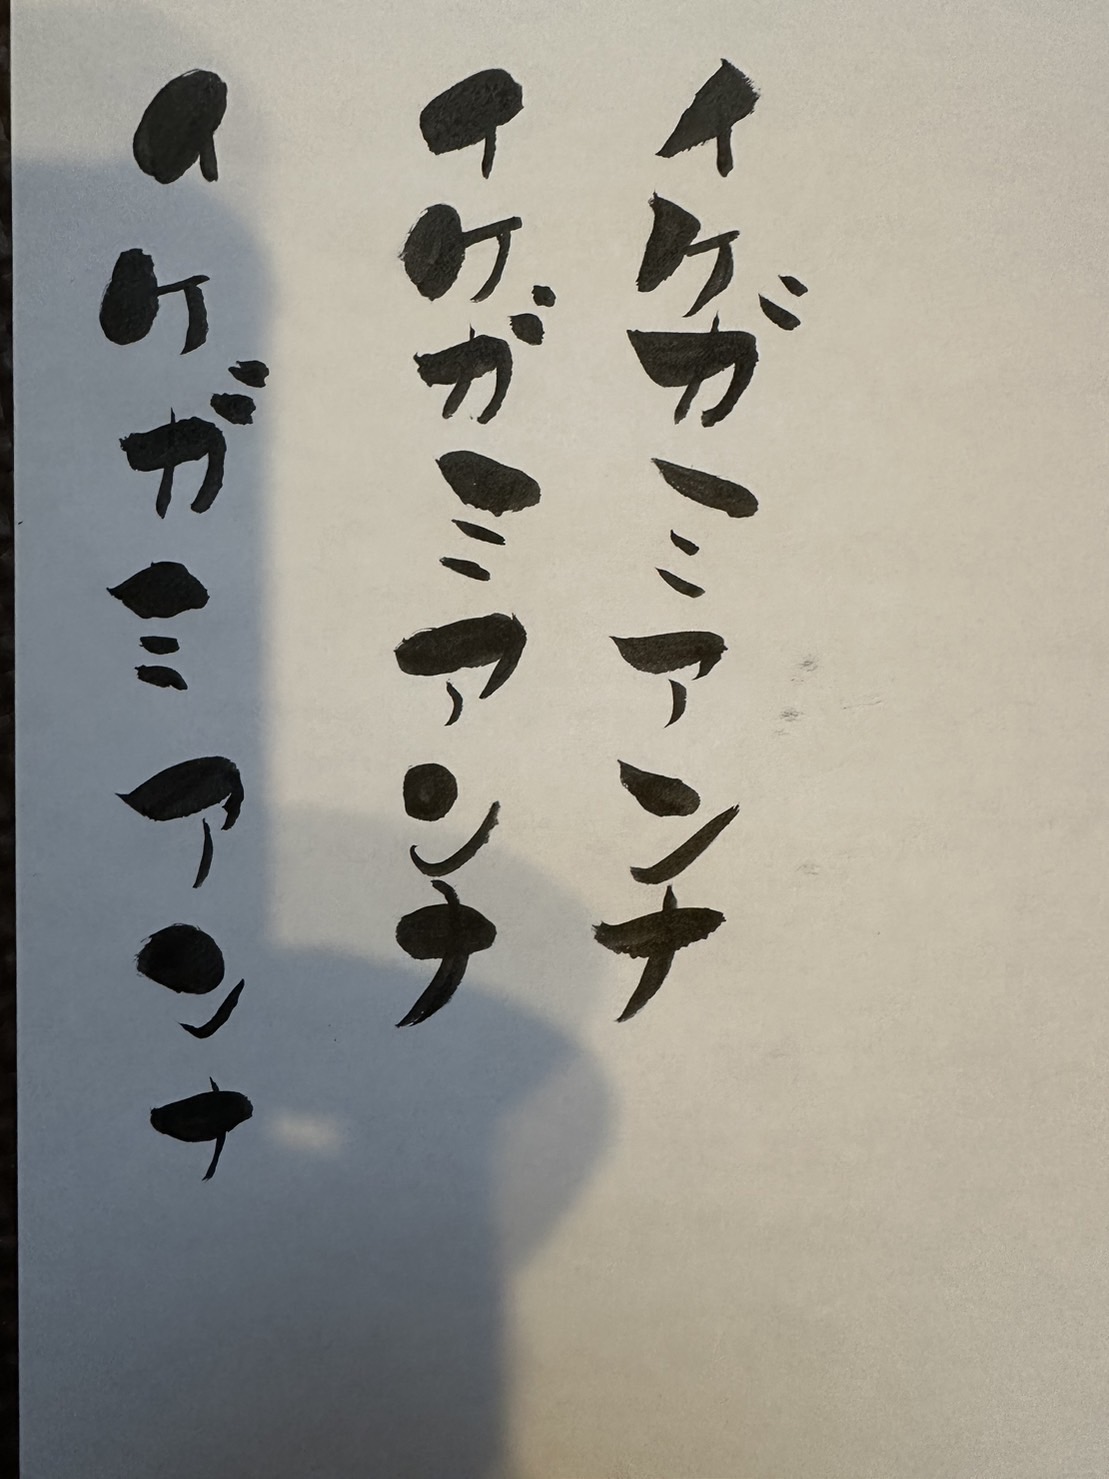 イケガミアンナ
イケガミアンナ
イケガミアンナ